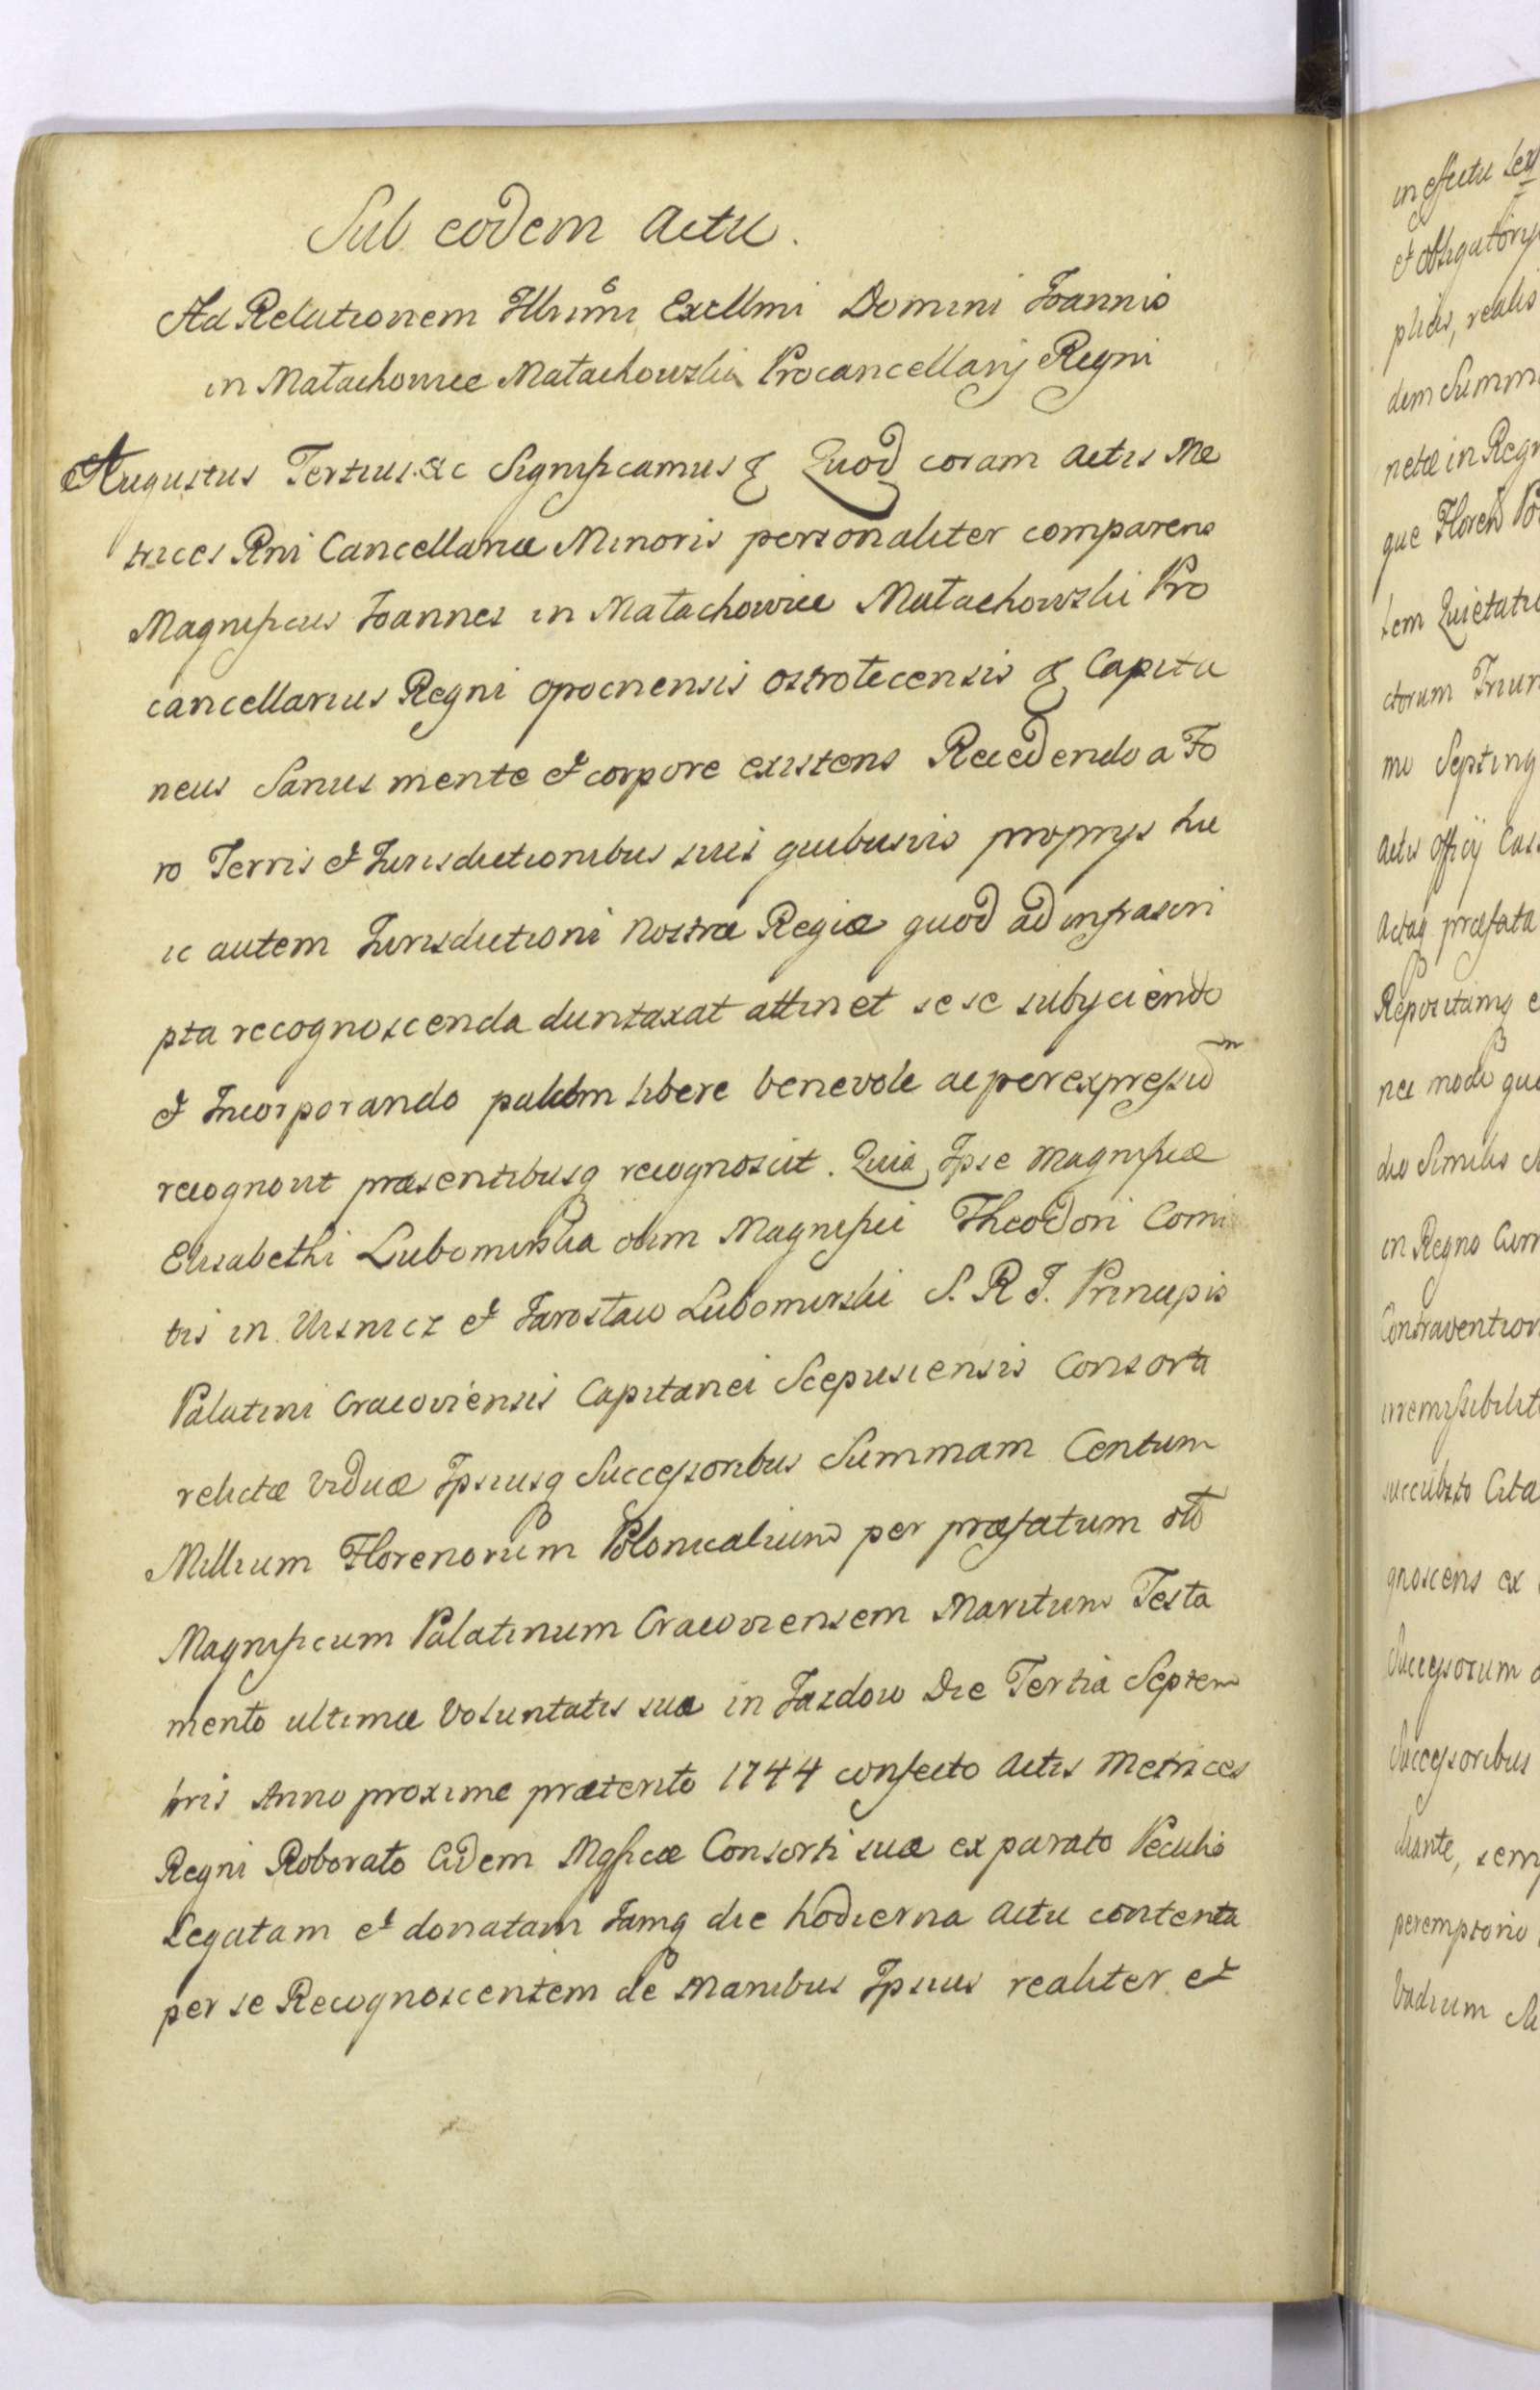 Sub eodem Actu.
Ad Relationem Illmi Excllmi Domini Joannis
in Małachowice Małachowski Procancellarij Regni
Augustus Tertius &c Significamus & Quod coram Actis Me
trices Rni Cancellariæ Minoris personaliter comparens
Magnificus Joannes in Małachowice Małachowski Pro
cancellarius Regni Opocnensis Ostrolecensis & Capita
neus Sanus mente et corpore existens Recedendo a Fo
ro Terris et Jurisdictionibus suis quibusvis proprijs hu
ic autem Jurisdictioni Nostræ Regiæ quod ad infrascri
pta recognoscenda duntaxat attinet sese subyciendo
et Incorporando palam libere benevole ac per expressum
recognovit præsentibusq recognoscit. Quia Ipse Magnificæ
Elisabethi Lubomirska olim Magnifici Theodori Comi
tis in Wisnicz et Jarosław Lubomirski S. R. J. Principis
Palatini Cracoviensis Capitanei Scepusiensis Consorti
relictæ Viduæ Ipsiusq Successoribus Summam Centum
Millium Florenorum Polonicalium per præfatum olim
Magnificum Palatinum Cracoviensem Maritum Testa
mento ultimæ Voluntatis suæ in Jazdow Die Tertia Septem
bris Anno proxime præterito 1744 confecto Actis Metrices
Regni Roborato Eidem Mgficæ Consorti suæ ex parato Peculio
Legatam et donatam Jamq die hodierna Actu contenta
per se Recognoscentem de Manibus Ipsius realiter et
in effectu
et obligatorij
plicis, realis
dem Summ
netæ in Regn
que Floren Po
tem Quietati
ctorum Triun
mo Septing
Actis Officij Cas
Actaq præfata
Repositamq
nec modo qu
dio Similis
in Regno Curr
Contravention
irremissibilit
succubito Cita
gnoscens ex
Successorum
Successoribus
diante, sem
peremptorio
Vadium